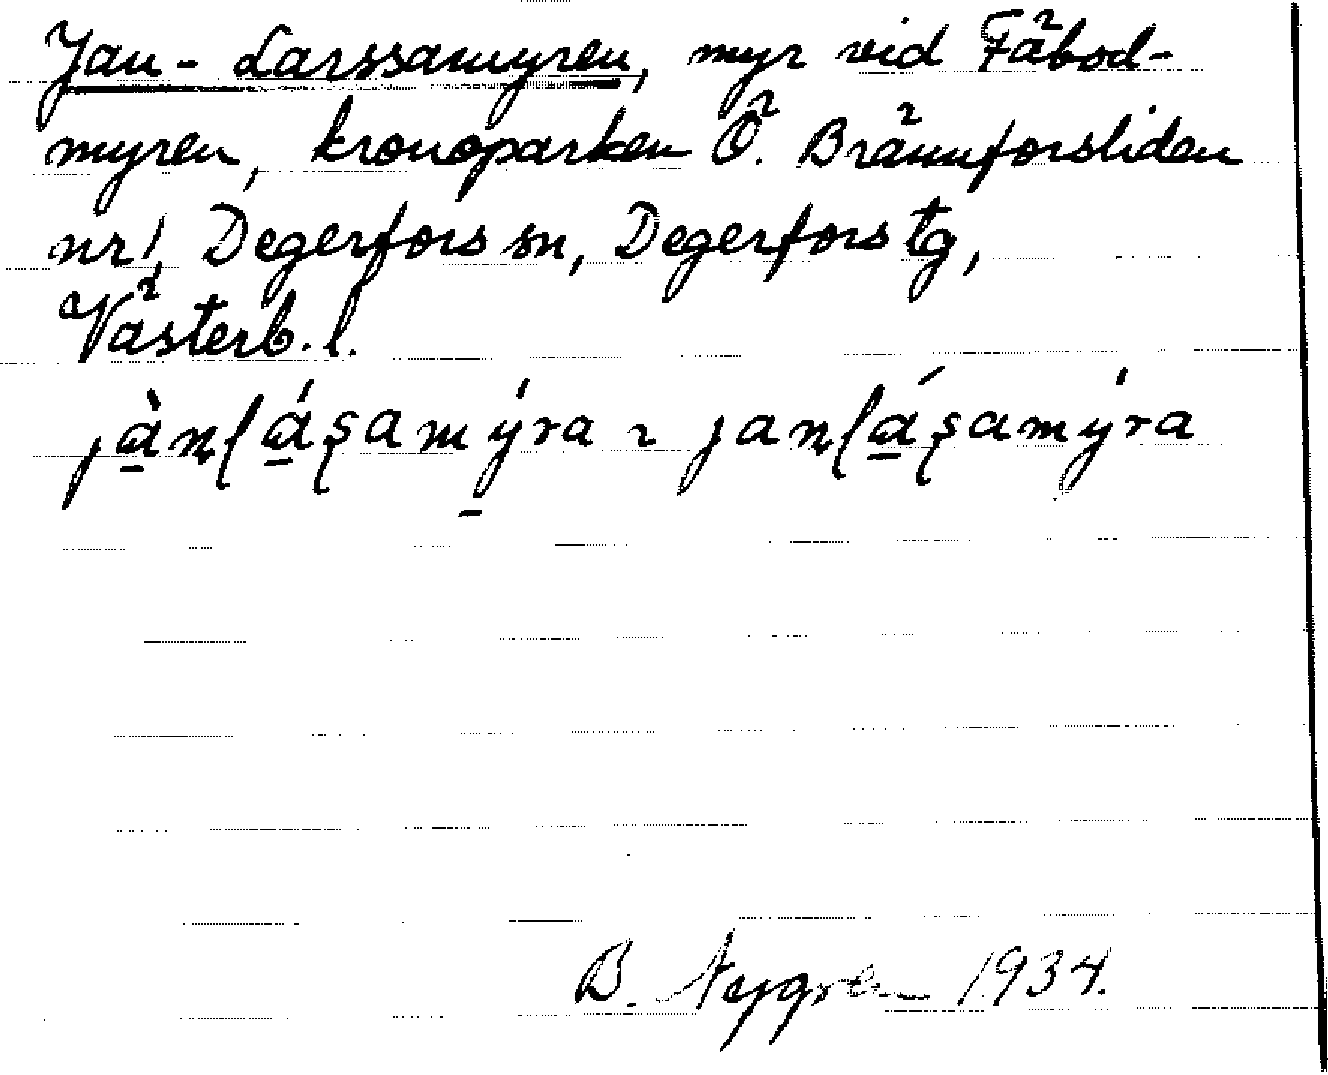 Jan-Larssamyren, myr vid Fäbod-
myren, kronoparken Ö. Brännforsliden
nr 1, Degerfors sn, Degerfors tg,
Västerb. l.
B. Nygren 1934.